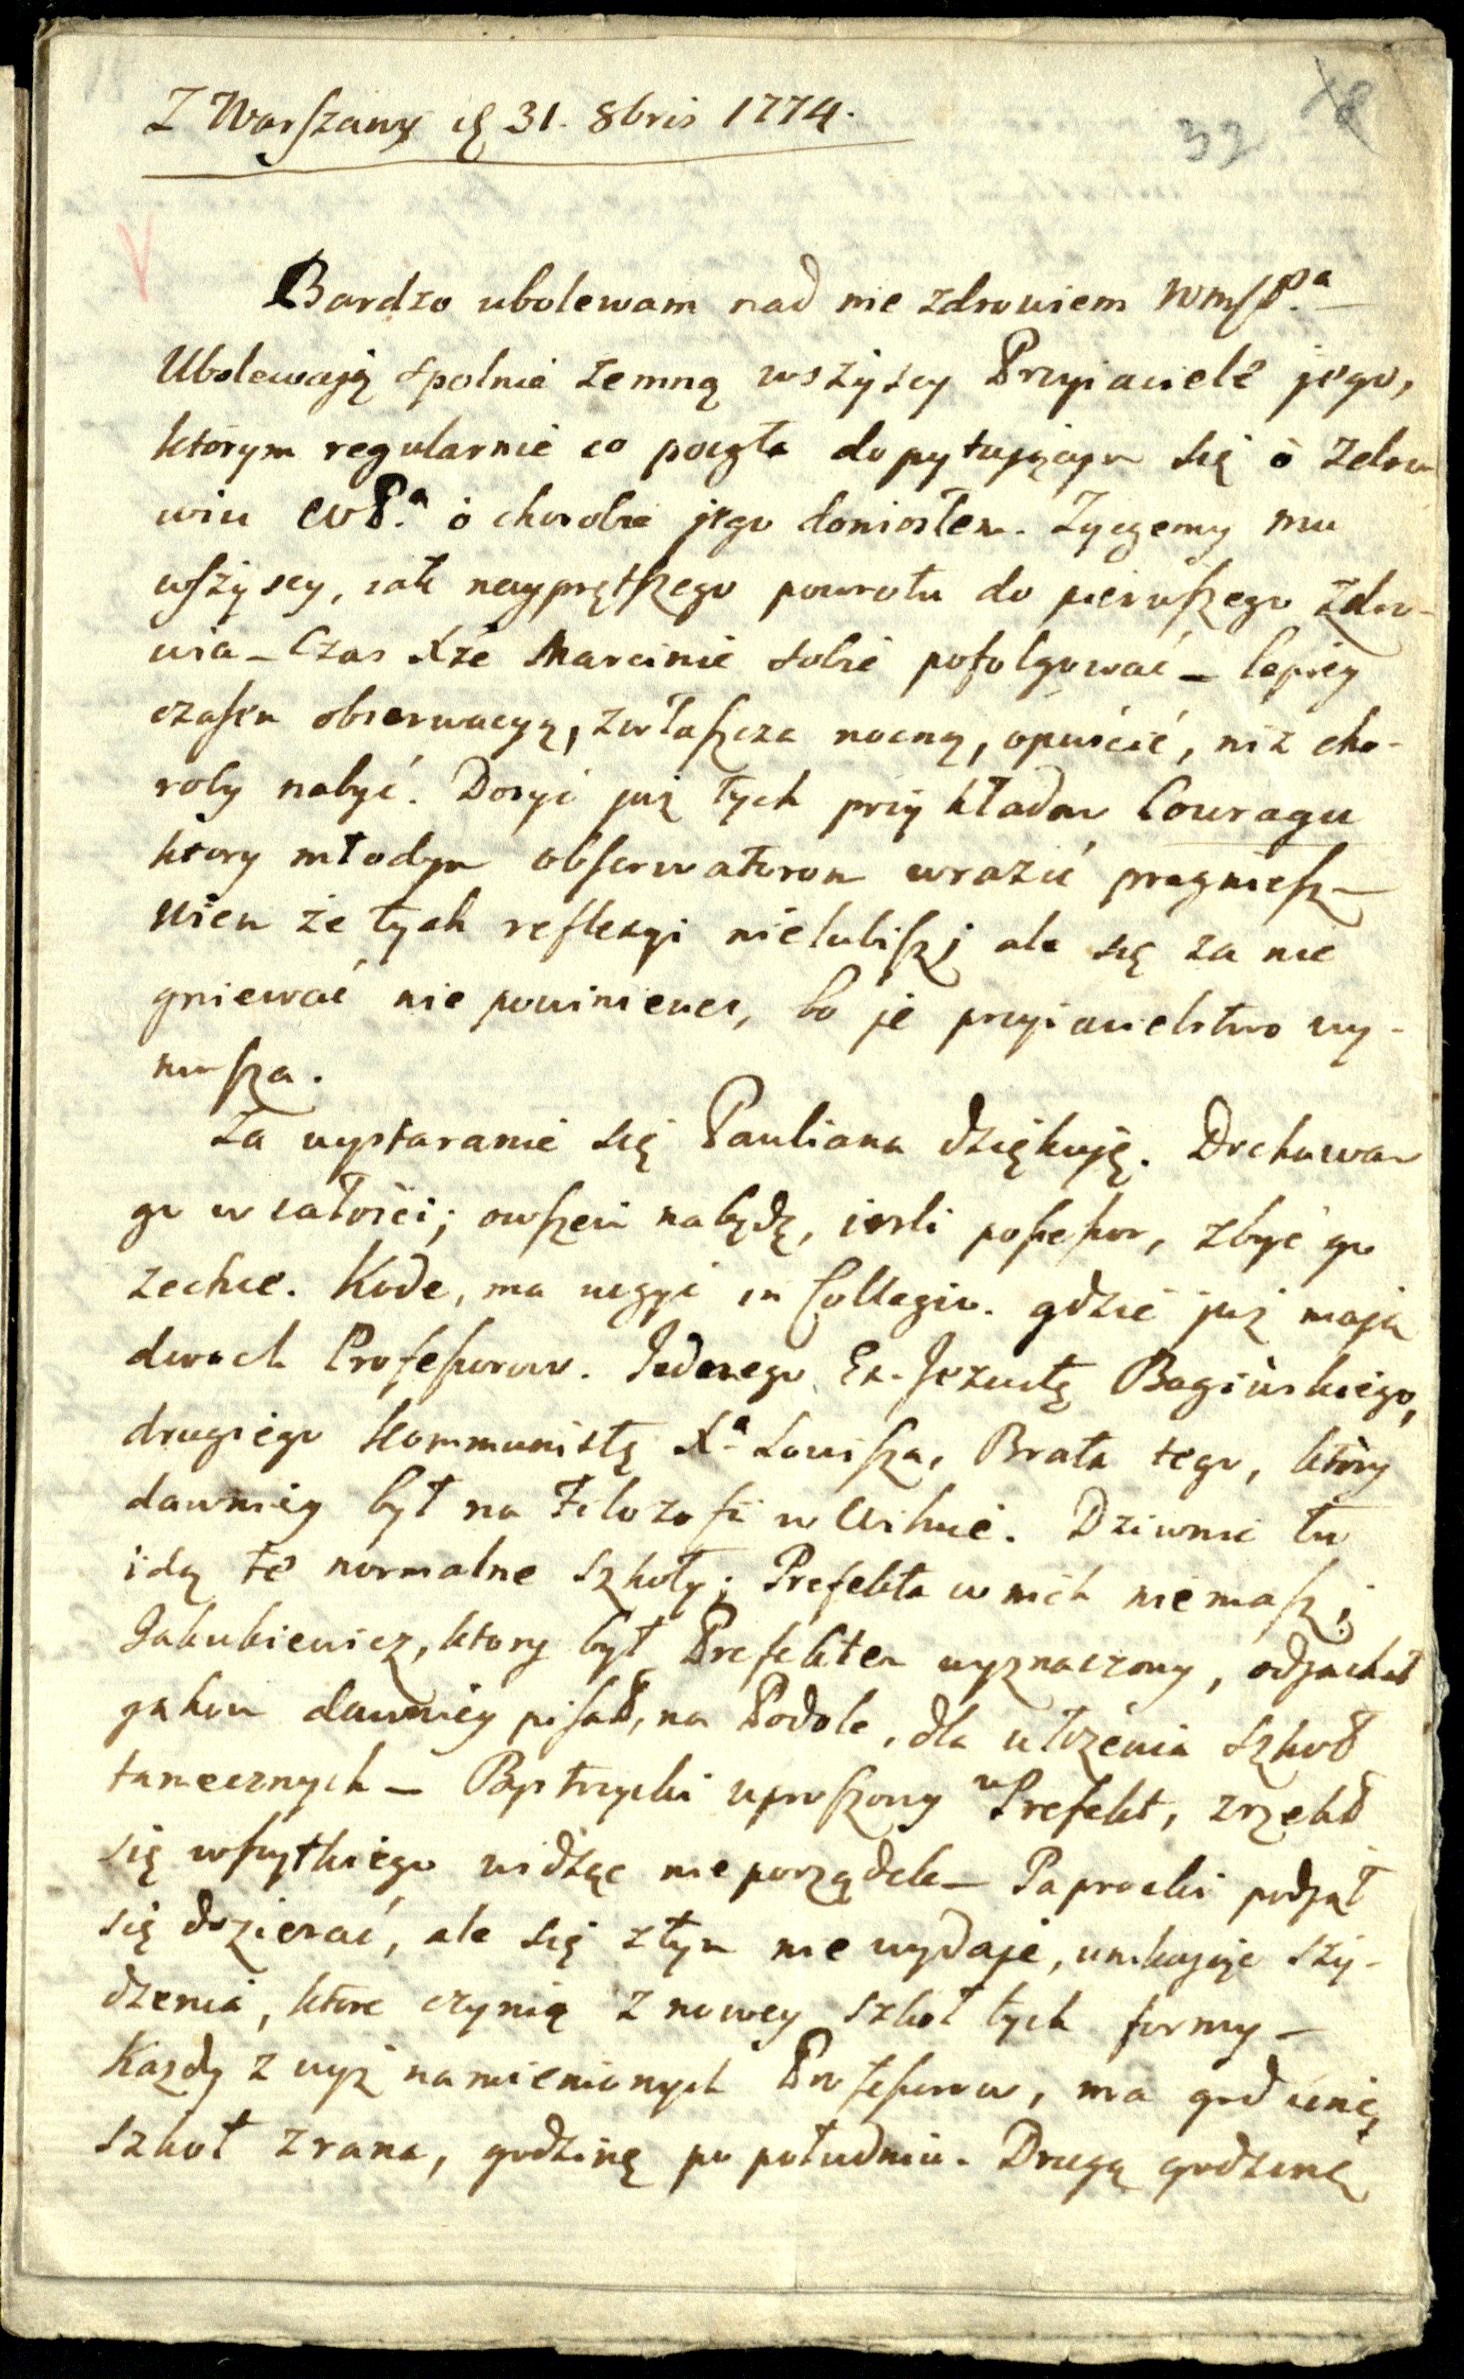 Z Warszawy d 31. 8bris 1774.
32
18
Bardzo ubolewam nad nie zdrowiem WmsPa
Ubolewaią spolnie zemną wszyscy Przyiaciele jego,
którym regularnie co poczta dopytującym się o zdro
wiu WPa o chorobie jego doniosłem. Zyczemy mu
wszyscy, iak nayprętszego powrotu do pierwszego zdro-
wia – Czas Xże Marcinie sobie pofolgować – lepiey
czasem obserwacyą, zwłaszcza nocną, opuścić, niż cho-
roby nabyć. Dosyć już tych przykładow Couragu
ktory młodym obserwatorom wrazić pragniesz –
Wiem że tych reflexyi nielubisz; ale się za nie
gniewać nie powinieneś, bo je przyiacielstwo wy-
musza.
Za wystaranie się Pauliana dziękuję. Dochowam
go w całości; owszem nabędę, iesli possessor, zbyć go
zechce. Kode, ma uczyć in Collegio. gdzie już mają
dwoch Professorow. Jednego Ex-Jezuitę Bagińskiego,
drugiego Kommunistę Xa Łowisza, Brata tego, ktory
dawniey był na Filozofii w Wilnie. Dziwnie tu
idą te normalne szkoły; Prefekta w nich nie masz;
Jakukiewicz, ktory był Prefektem wyznaczony, odjachał
jakom dawniey pisał, na Podole, dla ułożenia szkoł
tamecznych – Bystrzycki uproszony w Prefekt, zrzekł
się wszytkiego widząc nieporządek – Paprocki podjął
się dozierać, ale się z tym nie wydaje, unikając szy-
dzenia, ktore czynią z nowey szkoł tych formy –
Kazdy z wyż namienionych Professorow, ma godzinę
szkoł zrana, godzinę po południu. Drugą godzinę